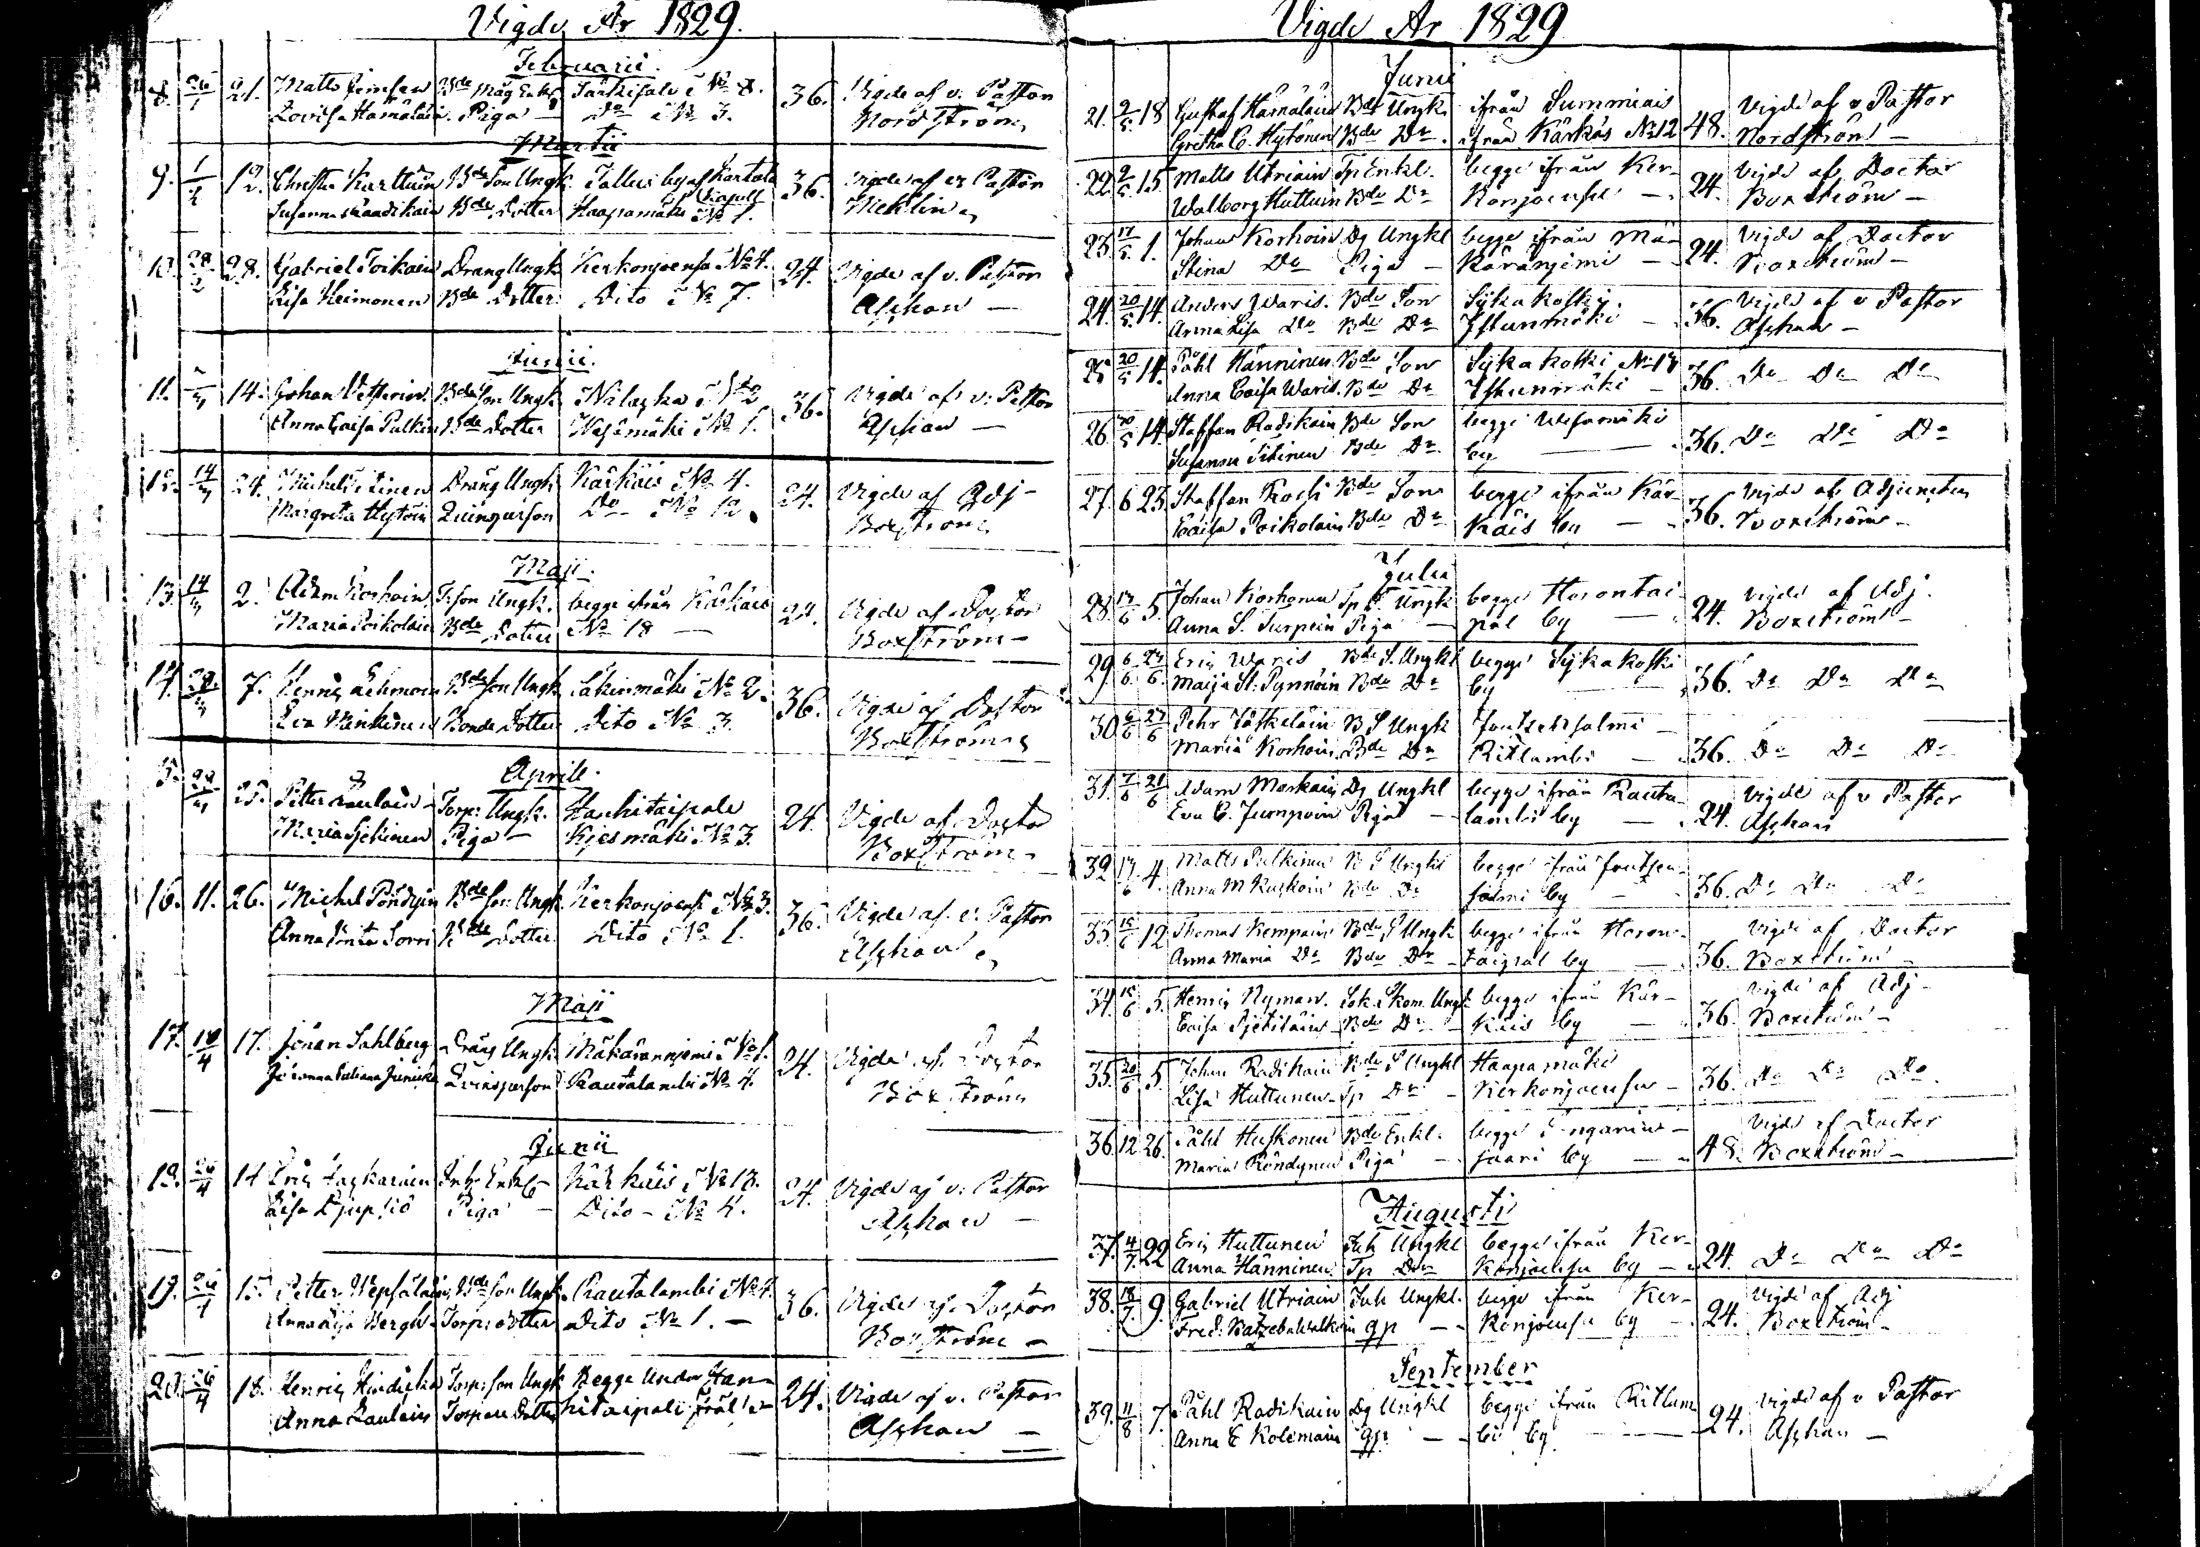 Vigde År 1829.
Februarii.
8. 26/1 21. Matts Jemsen Bde Måg Enkl. Särkisalo No 8. 36. Vigde af v. Pastor
Lovisa Hämäläin. Piga Do No 3. Nordström
Martii
9. 1/2 12. Christer Karttuin Bde Son Ungk. Tallus by af Kartula Kapell 36. Vigde af v. Pastor
Susanna Raadikain Bde Dotter Haapamäki No 1. Mehlin
10. 28/2 28. Gabriel Toikain Dräng Ungk. Kerkonjoensu No 4. 24. Vigde af v. Pastor
Lisa Heimonen Bde Dotter Dito No 7. Aschan
Junii.
11. 14. Johan Vesterin Bde Son Ungk. Nilacka No 2 36. Vigde af v. Pastor
Anna Caisa Pulkin Bde Dotter Wesamäki No 1. Aschan
12. 14/3 24. Michel Kärkäis No 4. 24. Vigde af Adj.
Margreta Hytöin Qvinsperson Do No 12. Boxström
Maji.
13. 14/3 2. Adam Korhoin T. Son Ungk. begge ifrån Kärkäis 24. Vigde af Doctor
Maria Poikolain Bde Dotter No 18 Boxström
14. 7. Henric Lehmoin Bde Son Ungk. Lakinmäki No 2. 36. Vigde af Doctor
Eva Minkinen Bonde Dotter Dito No 3. Boxström
Aprill.
15. 25. Petter Laulain Torp. Ungk. Hankitaipale 24. Vigde af Doctor
Maria Piga Kiesmäki No 3. Boxström
16. 11. 26. Michel Pöndyin Bde Son Ungk. Kerkonjoensu No 3. 36. Vigde af v. Pastor
Anna Sorri Bde Dotter Dito No 1. Aschan
Maji
17. 18/4 17. Johan Sahlberg Dräng Ungk. Mäkäranniemi No 1. 24. Vigde af Doctor
Johanna Juliana Qvinsperson Rautalambi No 4. Boxström
Junii
18. 26/4 14 Eric Enkl. Kärkäis No 18. 24. Vigde af v. Pastor
Lisa Djupsjö Piga Dito No 4. Aschan
19. 26/4 15. Petter Wepsäläin Bde Son Ungk. Rautalambi No 4. 36. Vigde af Doctor
Anna Bergh Torp. Dotter Dito No 1. Boxström
20. 26/4 18. Henric Torp. Son Ungk. Begge Under Han- 24. Vigde af v. Pastor
Anna Laulain Torpare Dotter kitaipale Aschan
Vigde Ar 1829
Junii
21. 2/5 18 Gustaf Hämäläin Bde Ungk. ifrån Summiais 48. Vigde af v Pastor
Gretha C. Hytönen Bde Dr. ifrån Kärkäs No 12 Nordström
22. 2/5 15. Matts Utriain Tp Enkl. begge ifrån Ker- 24. Vigde af Doctor
Walborg Huttuin Bde Dr Konjoensu Boxström
23. 17/5 1. Johan Korhoin Dg Ungkl begge ifrån Mä- 24. Vigde af Doctor
Stina Do Piga Käränjemi Boxström
24. 20/5 14. Anders Waris. Bde Son Sykäkoski. 36. Vigde af v Pastor
Anna Lisa Do Bde Dr Istunmäki Aschan
25 20/5 14. Påhl Hänninen Bde Son Sykäkoski No 17 36. Do Do Do
Anna Caisa Waris. Bde Dr Istunmäki
26 20/5 14 Staffan Radikain Bde Son begge Wesamäki 36. Do Do Do
Susanna Pitinen Bde Dr. by
27. 6 23. Staffan Koch Bde Son begge ifrån Kär- 36. Vigde af Adjuncten
Caisa Poikolain Bde Dr Käis by Boxström
Julii
28. 13/6 5. Johan Korhonen Tp S. Ungk begge Horontai- 24. Vigde af Adj.
Anna S. Surpein Piga pal by Boxström
29. 6/6 24/6 Eric Waris Bde S. Ungkl begge Sykäkoski 36. Do Do Do
Maija St. Pynnöin Bde Dr by
30. 6/6 27/6 Pehr Jäskeläin B S Ungk Joutsensalmi 36. Do Do Do
Maria Korhoin Bde Dr Kitlambi
31. 7/6 21/6 Adam Markain Dg Ungkl begge ifrån Rauta- 24. Vigde af v Pastor
Eva C. Jumpoin Piga lambi by Aschan
32. 17/6 4. Matts Pulkinen B S Ungkl begge ifrån Joutsen- 36. Do Do Do
Anna M Ruskoin Bde Dr salmi by
33. 15/6 12 Thomas Kempain Bde S Ungk begge ifrån Horon- 36. Vigde af Doctor
Anna Maria Do Bde Dr taipal by Boxström
34. 15/6 5. Henric Nyman. Sok. Skom. Ungk begge ifrån Kär- 36. Vigde af Adj.
Caisa Pjetiläin Bde Dr Käis by Boxström
35. 20/6 5. Johan Radikain Bde S Ungkl Haapamäki 36. Do Do Do.
Lisa Huttunen Tp Dr Kerkonjoensu
36. 12 26. Påhl Huskonen Bde Enkl. begge 48. Vigde af Doctor
Maria Röndynen Piga saari by Boxström
Augusti
37. 4/7 22 Eric Huttunen Inh Ungkl begge ifrån Ker- 24. Do Do Do
Anna Hänninen Tp Dr Konjoensu by
38. 18/7 9. Gabriel Utriain Inh Ungkl. begge ifrån Ker- 24. Vigde af Adj
Fred. Batzeba Walkoin qp Konjoensu by Boxström
September
39. 11/8 7. Påhl Radikain Dg Ungkl begge ifrån Kitlam 24. Vigde af v Pastor
Anna E Kolemain qp bi by. Aschan